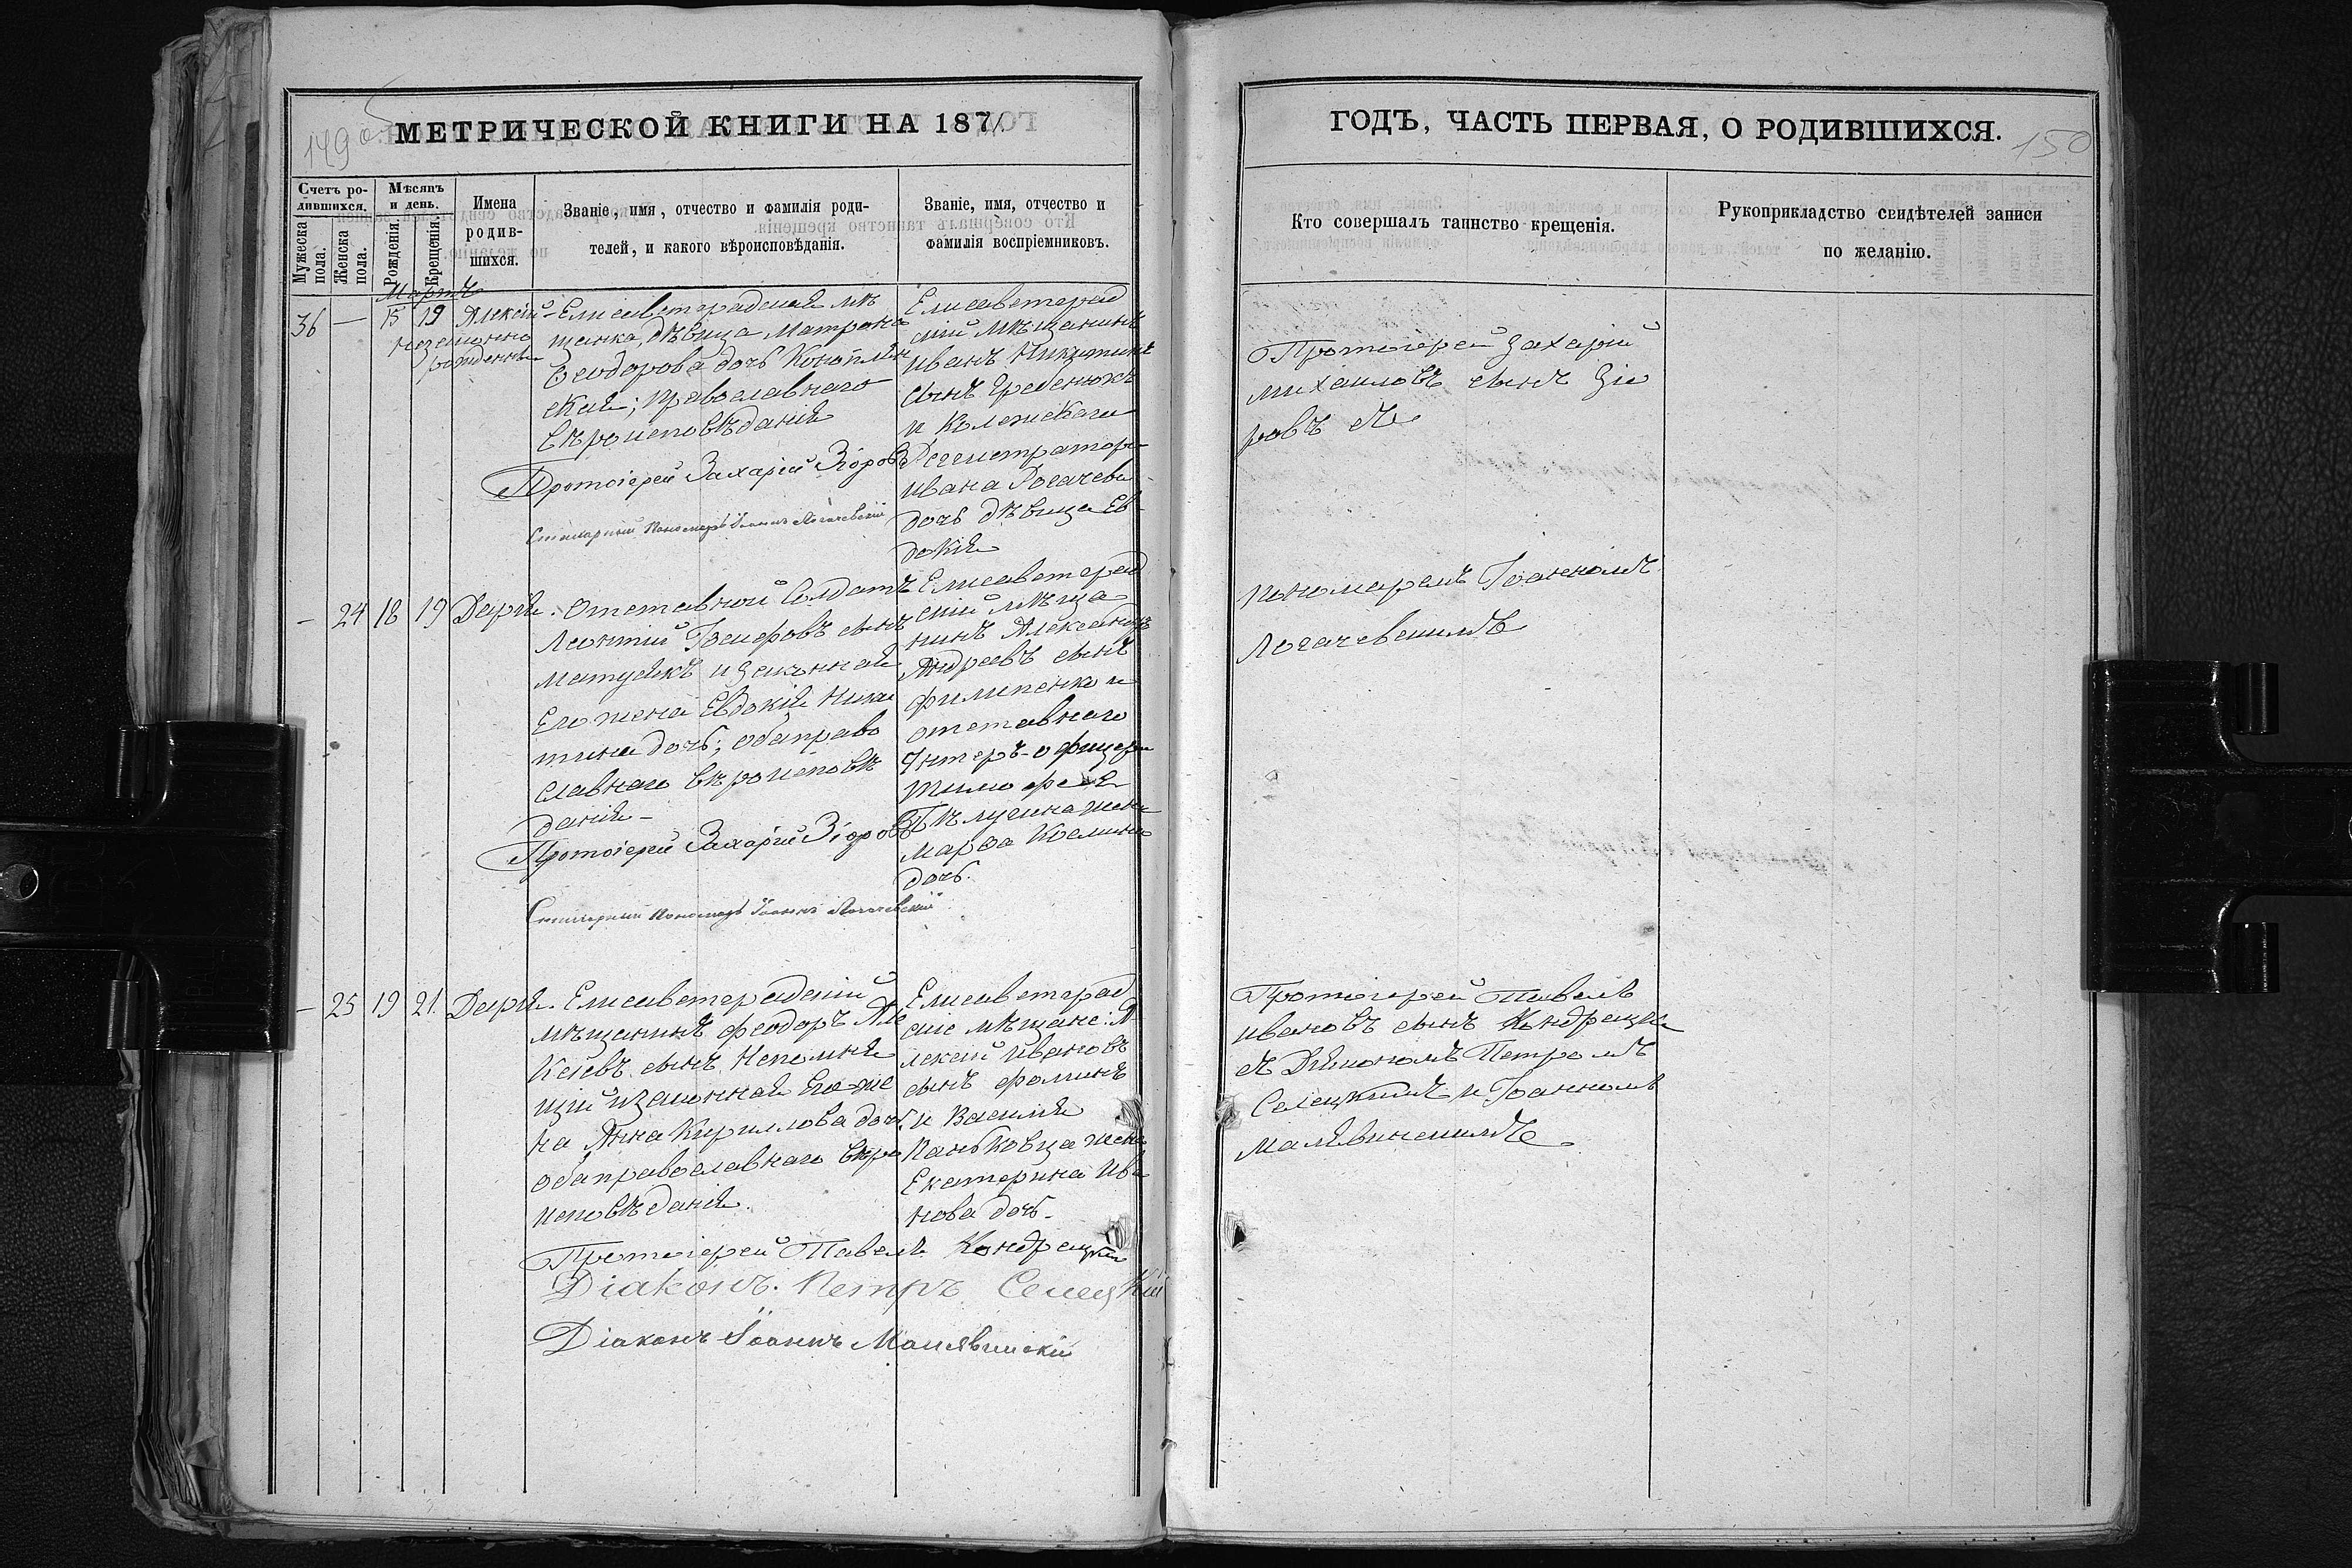 149 об.
МЕТРИЧЕСКОЙ КНИГИ НА 1871
Счетъ ро-
дившихся.
Мужеска пола.
Женска пола.
Мѣсяцъ
и день.
Рожденія.
Крещенія.
Имена
родив-
шихся.
Званіе, имя, отчество и фамилія роди-
телей, и какого вѣроисповѣданія.
Званіе, имя, отчество и
фамилія воспріемниковъ.
Мартъ
36 — 15 19 Алексій
незаконно
рожденный
Елисаветградская мѣ
щанка, дѣвица Матрона
Ѳеодорова дочь Коноплян
ская; православнаго
вѣроисповѣданія
Протоіерей Захарій Зіоровъ
Стихарный Пономарь Іоаннъ Логачевскій
Елисаветград
скій мѣщанинъ
Иванъ Никитинъ
сынъ Гребенюкъ
и Колежскаго
Регистратора
Ивана Рогачева
дочь дѣвица Ев-
докія
- 24 18 19 Дарія.
Отставной Солдатъ
Леонтій Іосифовъ сынъ
Матуякъ и законная
Его жена Евдокія Ники
тина дочь; оба право
славнаго вѣроисповѣ
данія -
Протоіерей Захарій Зіоровъ
Стихарный Пономарь Іоаннъ Логачевскій
Елисаветград
скій мѣща
нинъ Александръ
Андреевъ сынъ
Филипенко и
отставнаго
Унтеръ-офицера
Тимофея
жена
Марѳа Косьмина
дочь.
- 25 19 21. Дарія.
Елисаветградскій
мѣщанинъ Феодоръ Але
ксѣевъ сынъ Непомня
щій и законная Его же
на Анна Кириллова дочь.
оба православнаго вѣро
исповѣданія.
Протоіерей Павелъ Кондрацкій
Діаконъ Петръ Селецкій
Діаконъ Іоаннъ Малявинскій
Елисаветград
скіе мѣщане: А
лексій Ивановъ
сынъ Фоминъ
и Василія
Паньковца жена
Екатерина Ива
нова дочь.
ГОДЪ, ЧАСТЬ ПЕРВАЯ, О РОДИВШИХСЯ.
150
Кто совершалъ таинство крещенія.
Рукоприкладство свидѣтелей записи
по желанію.
Протоіерей Захарій
Михаиловъ сынъ Зіо
ровъ съ
пономаремъ Іоанномъ
Логачевскимъ
Протоіерей Павелъ
Ивановъ сынъ Кондрацкій
съ Діякономъ Петромъ
Селецкимъ и Іоанномъ
Малявинскимъ.